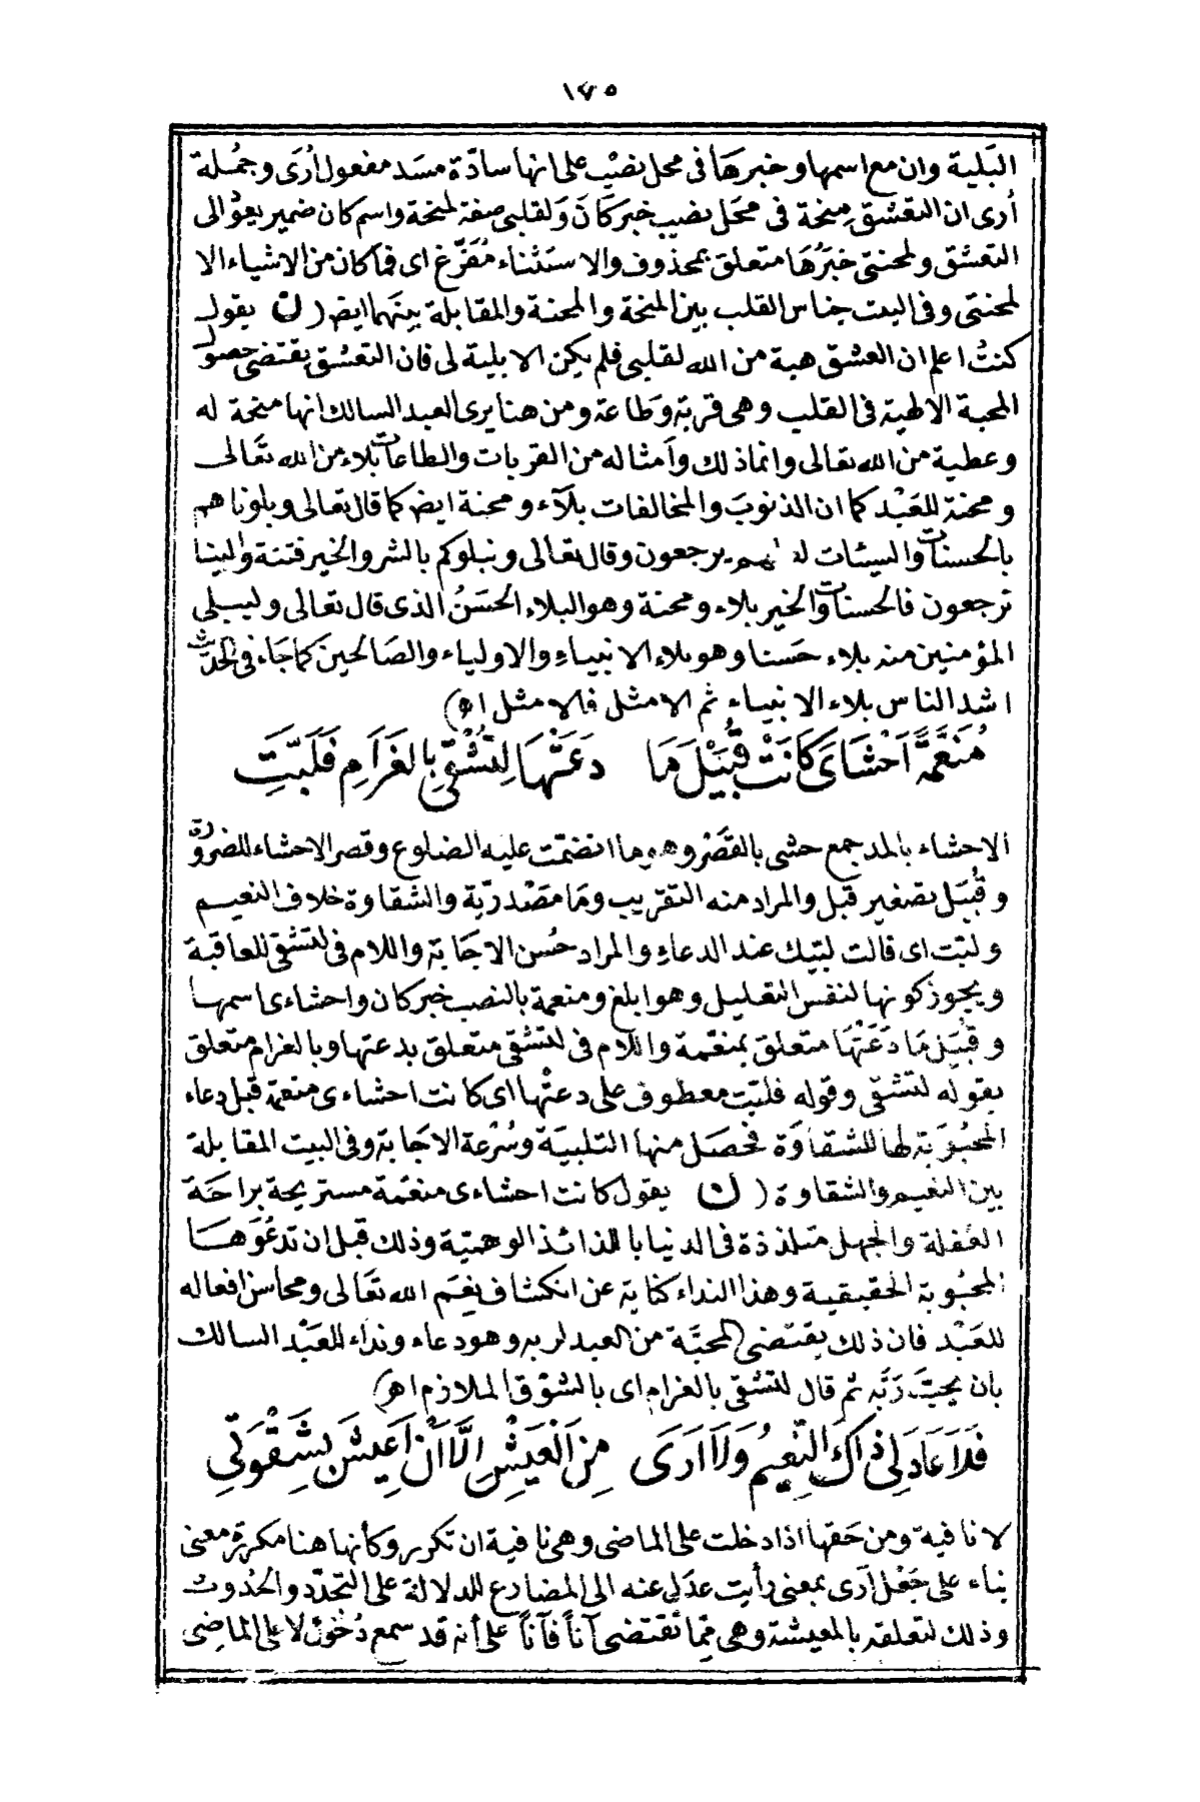 ١٧٥
البلية وان مع اسمها وخبرها فى محل نصب على انها سادّة مسد مفعول أرى وجملة
أرى ان التعشق منحة فى محل نصب خبر كان ولقلبى صفة لمنحة واسم كان ضمير يعود الى
التعشق ولمحنتى خبرها متعلق بمحذوف والاستثناء مفرّغ اى فما كان من الاشياء الا
لمحنتى وفى البيت جناس القلب بين المنحة والمحنة والمقابلة بينهما ايض (ن يقول
كنت اعلم ان العشق هبة من الله لقلبى فلم يكن الا بلية لى فان التعشق يقتضى حصول
المحبة الالهية فى القلب وهى قربة وطاعة ومن هنا يرى العبد السالك انها منحة له
وعطية من الله تعالى وانما ذلك وامثاله من القربات والطاعات بلاء من الله تعالى
ومحنة للعبد كما ان الذنوب والمخالفات بلآء ومحنة ايض كما قال تعالى وبلوناهم
بالحسنات والسيئات لعلهم يرجعون وقال تعالى ونبلوكم بالشر والخير فتنة والينا
ترجعون فالحسنات والخير بلاء ومحنة وهو البلاء الحسن الذى قال تعالى وليبلى
المؤمنين منه بلاء حسنا وهو بلاء الانبياء والاولياء والصالحين كما جاء فى الحديث
اشد الناس بلاء الانبياء ثم الامثل فالامثل اه)
مُنَعَّمَةً اَحْشَاىَ كَانَتْ قُبَيْلَ مَا دَعَتْهَا لِتَشْقَى بِالغَرَامِ فَلَبَّتِ
الاحشاء بالمد جمع حشى بالقصر وهو ما انضمت عليه الضلوع وقصر الاحشاء للضرورة
وقُبيل تصغير قبل والمراد منه التقريب وما مصدريّة والشقاوة خلاف النعيم
ولبّت اى قالت لبّيك عند الدعاء والمراد حُسن الاجابة واللام فى لتشقى للعاقبة
ويجوز كونها لنفس التعليل وهو ابلغ ومنعمة بالنصب خبر كان واحشاءى اسمها
وقبيل ما دعتها متعلق بمنعّمة واللام فى لتشقى متعلق بدعتها وبالغرام متعلق
بقوله لتشقى وقوله فلبّت معطوف على دعتها اى كانت احشاءى منعمة قبل دعاء
المحبوبة لها للشقاوة فحصل منها التلبية وسُرعة الاجابة وفى البيت المقابلة
بين النعيم والشقاوة (ن يقول كانت احشاءى منعّمة مستريحة براحة
الغفلة والجهل متلذذة فى الدنيا باللذائذ الوهميّة وذلك قبل ان تدعوها
المحبوبة الحقيقية وهذا النداء كناية عن انكشاف نِعَم الله تعالى ومحاسن افعاله
للعبد فان ذلك يقتضى المحبّة من العبد لربه وهو دعاء ونداء للعبد السالك
بان يحبّ ربّه ثم قال لتشقى بالغرام اى بالشوق الملازم اه)
فَلَا عَادَ لِى ذَاكَ النَّعِيمُ وَلَا اَرَى مِنَ الْعَيْشِ اِلَّا اَنْ اَعِيشَ بِشِقْوَتِى
لا نافية ومن حقها اذا دخلت على الماضى وهى نافية ان تكرر وكأنها هنا مكررة معنى
بناء على جعل ارى بمعنى رأيت عدل عنه الى المضارع للدلالة على التجدّد والحُدوث
وذلك لتعلقه بالمعيشة وهى مِمّا تقتضى آناً فآناً على أنه قد سمع دُخول لا على الماضى